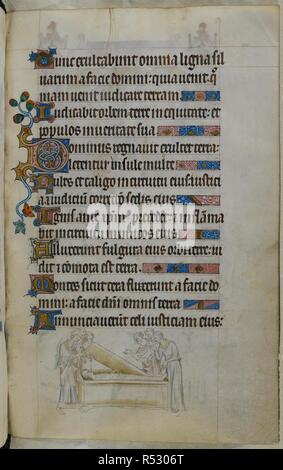 Tunc exultabunt omnia ligna sil
uarum a facie domini: quia uenit qm
iam uenit iudicare terram
Iudicabit orbem terre in equitate: et
populos in ueritate sua
Dominus regnauit exultet terra:
letentur insule multe
Nubes et caligo in circuitu eius: iustici
a et iudicium correctio sedis eius
Ignis ante ipsum precedet: et inflamma
bit in circuitu inimicos eius
Alluxerunt fulgura eius orbi terre: ui
dit et comota est terra
Montes sicut cera fluxerunt a facie do
mini: a facie domini omnis terra
Annunciauerunt celi iusticiam eius:
alamy
alamy
www.alamy.com - R5306T